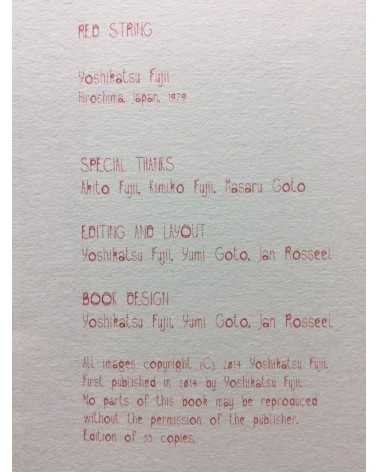 RED STRING
Yoshikatsu Fujii
Hiroshima, Japan, 1979
SPECIAL THANKS
Akito Fujii, Kimiko Fujii, Masaru Goto
EDITING AND LAYOUT
Yoshikatsu Fujii, Yumi Goto, Jan Rosseel
BOOK DESIGN
Yoshikatsu Fujii, Yumi Goto, Jan Rosseel
All images copyright (C) 2014 Yoshikatsu Fujii.
First published in 2014 by Yoshikatsu Fujii.
No parts of this book may be reproduced
without the permission of the publisher.
Edition of 35 copies.